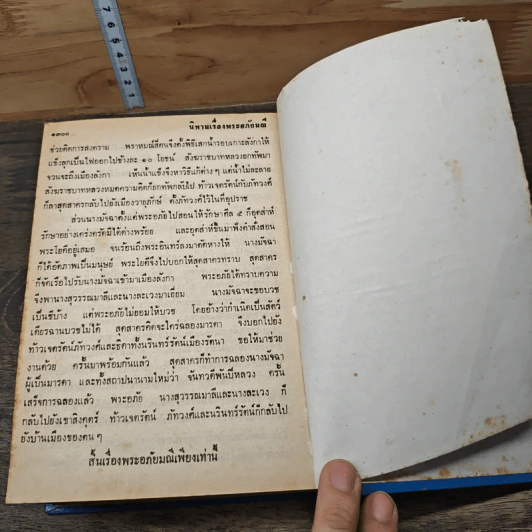 ๑๓๐๐ นิทานเรื่องพระอภัยมณี
ช่วยคิดการสงคราม พราหมณ์สี่คนจึงตั้งพิธีเสกน้ำรอบเกาะลังกาให้
แข็งลุกเป็นไฟออกไปข้างละ ๑๐ โยชน์ สังฆราชบาทหลวงยกทัพมา
จวนจะถึงเมืองลังกา เห็นน้ำแข็งจึงหาวิธีแก้ต่าง ๆ แต่น้ำไม่ละลาย
สังฆราชบาทหลวงหมดความคิดก็ยกทัพกลับไป ท้าวเจตรัตน์กับภัทวงศ์
ก็ลาสุดสาครกลับไปยังเมืองวายุภักษ์ ตั้งภัทวงศ์ไว้ในที่อุปราช
ส่วนนางมัจฉาตั้งแต่พระอภัยไปสอนให้รักษาศีล ๕ ก็อุตส่าห์
รักษาอย่างเคร่งครัดมิได้ด่างพร้อย และอุตส่าห์ขึ้นมาฟังคำสั่งสอน
พระโยคีอยู่เสมอ จนร้อนถึงพระอินทร์ลงมาตัดหางให้ นางมัจฉา
ก็ได้อัตภาพเป็นมนุษย์ พระโยคีจึงไปบอกให้สุดสาครทราบ สุดสาคร
ก็จัดเรือไปรับนางมัจฉาเข้ามาเมืองลังกา พระอภัยได้ทราบความ
จึงพานางสุวรรณมาลีและนางละเวงมาเยี่ยม นางมัจฉาจะขอบวช
เป็นชีบ้าง แต่พระอภัยไม่ยอมให้บวช โดยอ้างว่ากำเนิดเป็นสัตว์
เดียรฉานบวชไม่ได้ สุดสาครคิดจะใคร่ฉลองมารดา จึงบอกไปยัง
ท้าวเจตรัตน์ภัทวงศ์และธิดาทั้งนรินทร์รัตน์เมืองรัตนา ขอให้มาช่วย
งานด้วย ครั้นมาพร้อมกันแล้ว สุดสาครก็ทำการฉลองนางมัจฉา
ผู้เป็นมารดา และทั้งสถาปนานามใหม่ว่า จันทวดีพันปีหลวง ครั้น
เสร็จการฉลองแล้ว พระอภัย นางสุวรรณมาลีและนางละเวง ก็
กลับไปยังเขาสิงคุตร์ ท้าวเจตรัตน์ ภัทวงศ์และนรินทร์รัตน์ก็กลับไป
ยังบ้านเมืองของตน ๆ
สิ้นเรื่องพระอภัยมณีเพียงเท่านี้
7
6
5
4
3
2
1